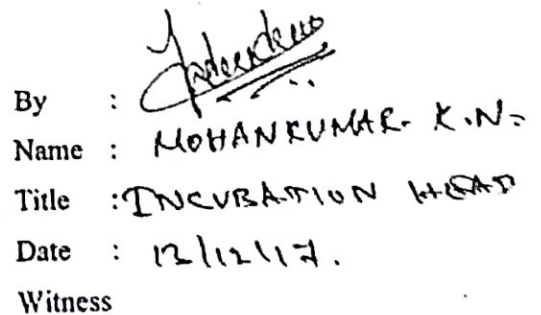 By :
Name : MOHANKUMAR. K.N.
Title : INCUBATION HEAD
Date : 12/12/17.
Witness